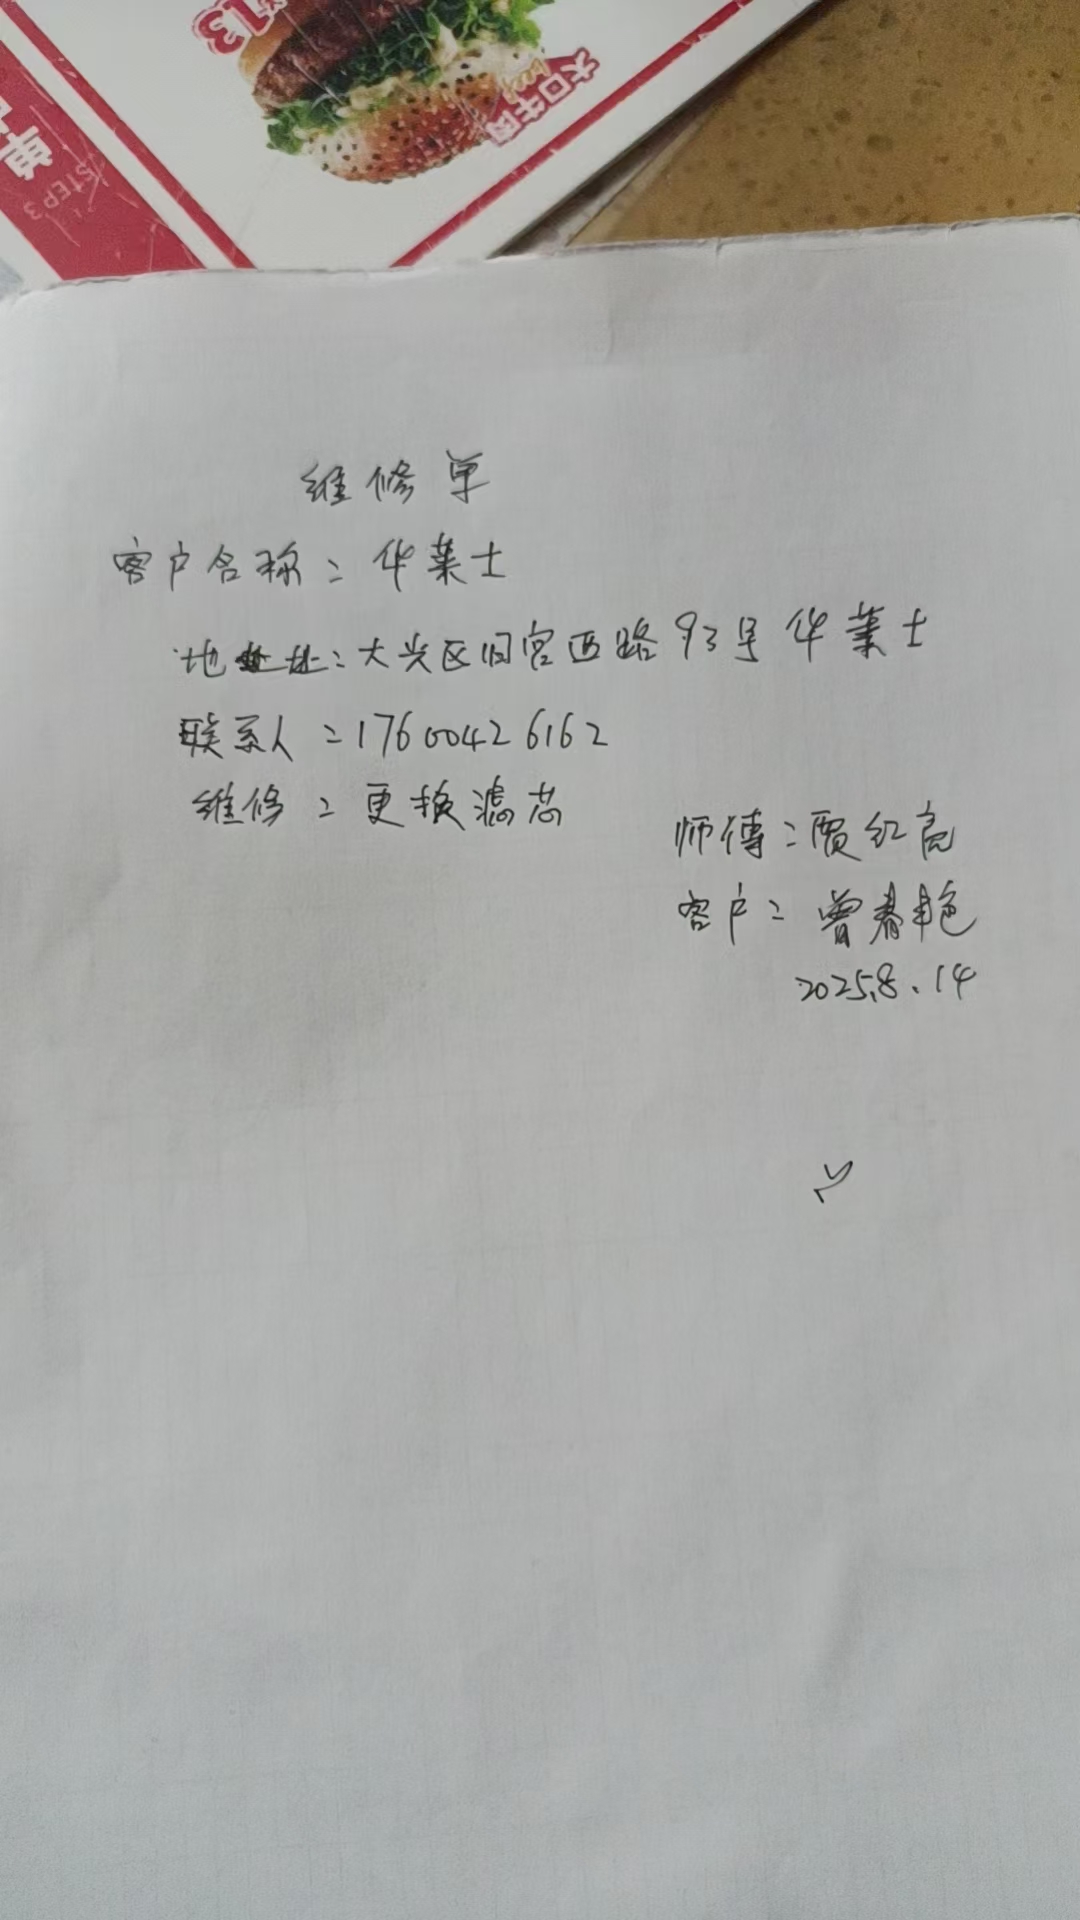 大口牛肉
单
STEP3
维修单
客户名称：华莱士
地址：大兴区旧宫西路93号华莱士
联系人：17600426162
维修：更换滤芯
师傅：贾红亮
客户：曾春艳
2025.8.14